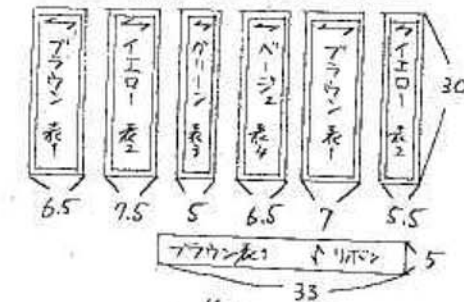 ブラウン 表1
イエロー 表2
グリーン 表3
ベージュ 表4
ブラウン 表1
イエロー 表2
30
6.5 7.5 5 6.5 7 5.5
ブラウン表1 リボン 5
33